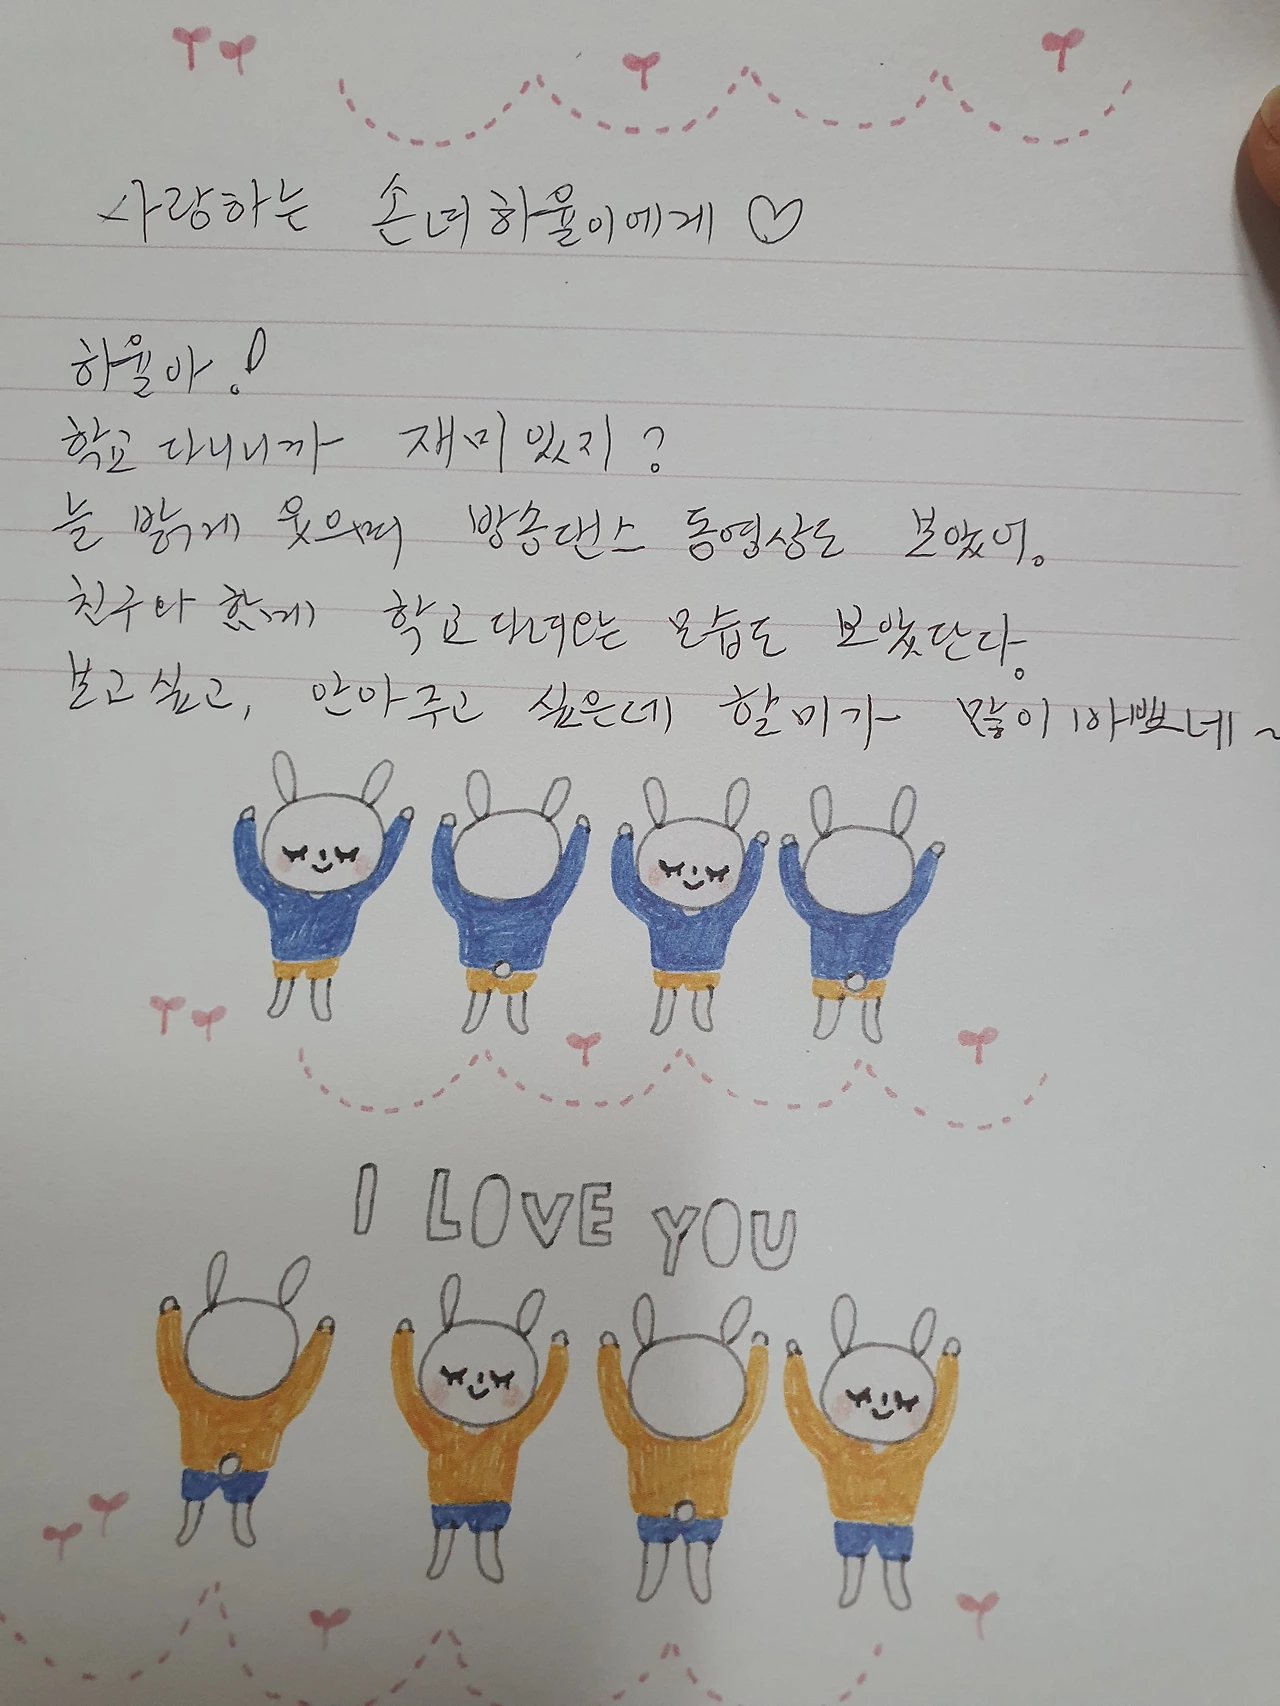 사랑하는 손녀 하율이에게 ♡
하율아!
학교 다니니까 재미있지?
늘 밝게 웃으며 방송댄스 동영상도 보았어.
친구와 함께 학교 다녀오는 모습도 보았단다.
보고싶고, 안아주고 싶은데 할미가 많이 바쁘네~
I LOVE YOU